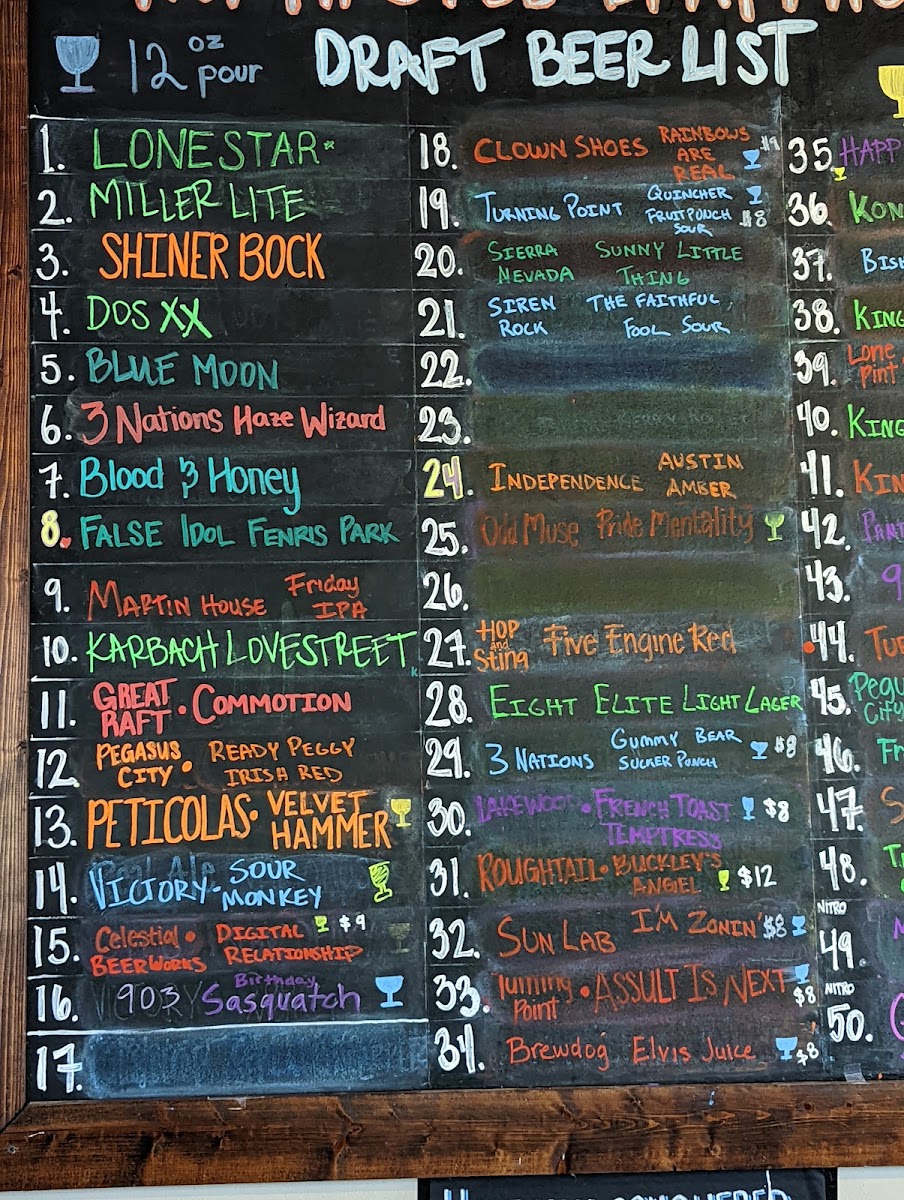 DRAFT BEER LIST
12 oz pour
1. LONESTAR*
2. MILLER LITE
3. SHINER BOCK
4. DOS XX
5. BLUE MOON
6. 3 Nations Haze Wizard
7. Blood & Honey
8. FALSE IDOL FENRIS PARK
9. MARTIN HOUSE Friday IPA
10. KARBACH LOVESTREET
11. GREAT RAFT • COMMOTION
12. PEGASUS CITY • READY PEGGY IRISH RED
13. PETICOLAS • VELVET HAMMER
14. VICTORY • SOUR MONKEY
15. Celestial BEERWORKS • DIGITAL RELATIONSHIP $9
16. 903 Birthday Sasquatch
17.
18. CLOWN SHOES RAINBOWS ARE REAL $9
19. TURNING POINT QUINCHER FRUIT PUNCH SOUR $8
20. SIERRA NEVADA SUNNY LITTLE THING
21. SIREN ROCK THE FAITHFUL FOOL SOUR
22.
23.
24. INDEPENDENCE AUSTIN AMBER
25. Odd Muse Pride Mentality
26.
27. HOP and Sting Five Engine Red
28. EIGHT ELITE LIGHT LAGER
29. 3 NATIONS GUMMY BEAR SUCKER PUNCH $8
30. LAKEWOOD • FRENCH TOAST TEMPTRESS $8
31. ROUGHTAIL • BUCKLEY'S ANGEL $12
32. SUN LAB I'M ZONIN' $8
33. Turning Point • ASSULT IS NEXT $8
34. Brewdog Elvis Juice $8
35. HAPP
36. KON
37. BISH
38. KING
39. Lone Pint
40. KING
41. KIN
42. PANT
43. 9
44. TUP
45. Pegu City
46. FR
47. S
48. T
NITRO
49.
NITRO
50.